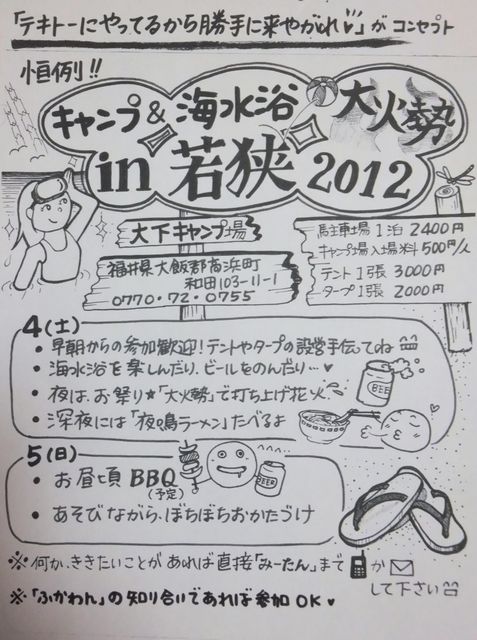 「テキトーにやってるから勝手に来やがれ♥」が コンセプト
恒例!!
キャンプ & 海水浴 大火勢
in 若狭 2012
大下キャンプ場
福井県大飯郡高浜町
和田103-11-1
0770-72-0755
駐車場1泊 2400円
キャンプ場入場料 500円/人
テント1張 3000円
タープ1張 2000円
4(土)
・早朝からの参加歓迎!テントやタープの設営手伝ってね
・海水浴を楽しんだり、ビールをのんだり…♥
・夜は、お祭り★「大火勢」で打ち上げ花火
・深夜には「夜鳴ラーメン」たべるよ
BEER
5(日)
・お昼頃 BBQ
(予定)
BEER
・あそびながら、ぼちぼちおかたづけ
※ 何か、ききたいことがあれば直接「みーたん」まで か
して下さい
※「ふかわん」の知り合いであれば参加OK♥